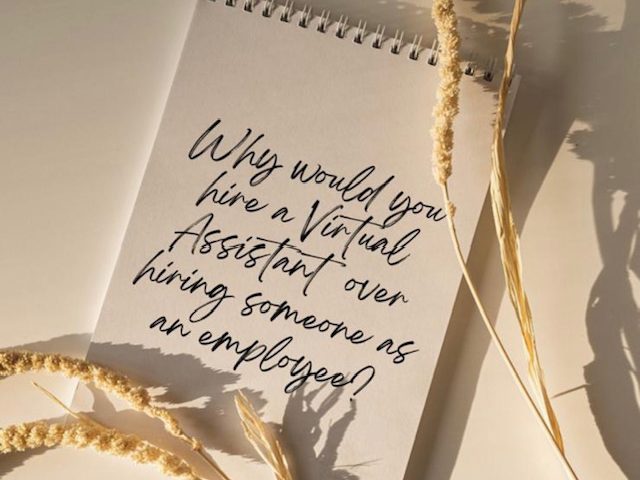 Why would you
hire a Virtual
Assistant over
hiring someone as
an employee?